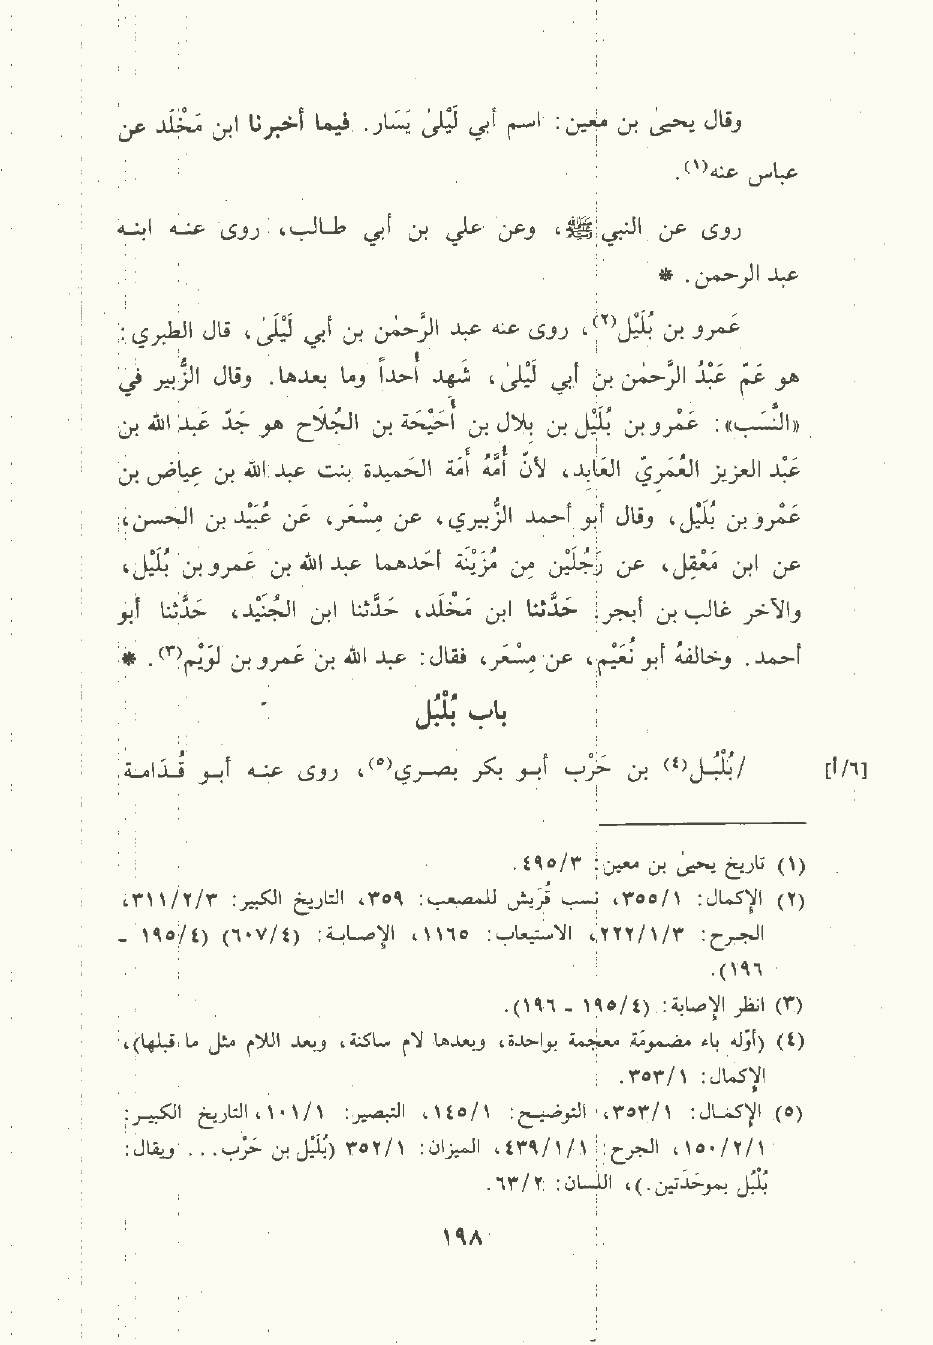 وقال يحيىٰ بن معين: اسم أبي لَيْلىٰ يَسَار. فيما أخبرنا ابن مَخْلَد عن
عباس عنه(١).
روى عن النبي ﷺ، وعن علي بن أبي طالب، روى عنه ابنه
عبد الرحمن. *
عَمرو بن بُلَيْل(٢)، روى عنه عبد الرَّحمٰن بن أبي لَيْلَىٰ، قال الطبري:
هو عَمّ عَبْدُ الرَّحمٰن بن أبي لَيْلىٰ، شَهد أُحداً وما بعدها. وقال الزُّبير في
«النَّسَب»: عَمْرو بن بُلَيْل بن بِلال بن أُحَيْحَة بن الجُلَاح هو جَدّ عَبد الله بن
عَبْد العزيز العُمَرِيّ العَابِد، لأنّ أُمَّهُ أَمَة الحَميدة بنت عبد الله بن عِياض بن
عَمْرو بن بُلَيْل، وقال أبو أحمد الزُّبيري، عن مِسْعَر، عَن عُبَيْد بن الحسن،
عن ابن مَعْقِل، عن رَجُلَيْن مِن مُزَيْنَة أحَدهما عبد الله بن عَمرو بن بُلَيْل،
والآخر غالب بن أبجر: حَدَّثنا ابن مَخْلَد، حَدَّثنا ابن الجُنَيْد، حَدَّثنا أبو
أحمد. وخالفهُ أبو نُعَيْم، عن مِسْعَر، فقال: عبد الله بن عَمرو بن لَوَيْم(٣). *
باب بُلْبُل
[٦/أ] /بُلْبُل(٤) بن حَرْب أبو بكر بصري(٥)، روى عنه أبو قُدَامة
(١) تاريخ يحيىٰ بن معين: ٤٩٥/٣.
(٢) الإكمال: ٣٥٥/١، نسب قُرَيش للمصعب: ٣٥٩، التاريخ الكبير: ٣١١/٢/٣،
الجرح: ٢٢٢/١/٣، الاستيعاب: ١١٦٥، الإصابة: (٦٠٧/٤) (١٩٥/٤ -
١٩٦).
(٣) انظر الإصابة: (١٩٥/٤ - ١٩٦).
(٤) (أوّله باء مضمومة معجمة بواحدة، وبعدها لام ساكنة، وبعد اللام مثل ما قبلها)،
الإكمال: ٣٥٣/١.
(٥) الإكمال: ٣٥٣/١، التوضيح: ١٤٥/١، التبصير: ١٠١/١، التاريخ الكبير:
١٥٠/٢/١، الجرح: ٤٣٩/١/١، الميزان: ٣٥٢/١ (بُلَيْل بن حَرْب... ويقال:
بُلْبُل بموحَدَتين.)، اللسان: ٦٣/٢.
١٩٨